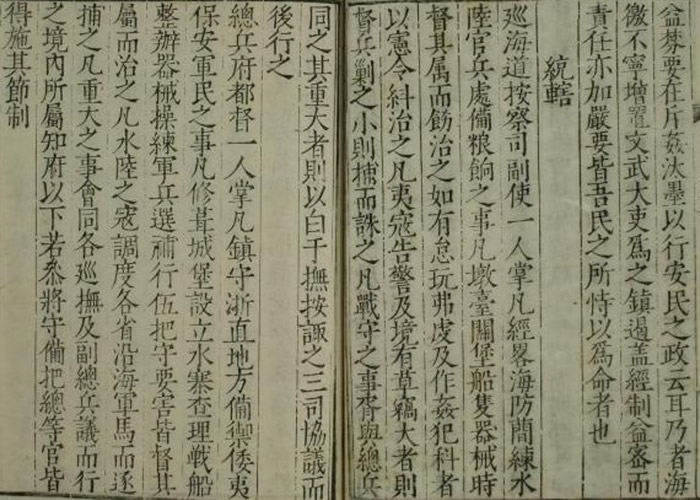 益棼要在斥姦汰墨以行安民之政云耳乃者海
徼不寧增置文武大吏爲之鎮遏盖經制益密而
責任亦加嚴要皆吾民之所恃以爲命者也
統轄
巡海道按察司副使一人掌凡經畧海防蕳練水
陸官兵處備粮餉之事凡墩臺關堡船隻器械時
督其属而飭治之如有怠玩弗虔及作姦犯科者
以憲令糾治之凡夷寇告警及境有草竊大者則
督兵剿之小則捕而誅之凡戰守之事胥與總兵
同之其重大者則以白于撫按諏之三司協議而
後行之
總兵府都督一人掌凡鎮守浙直地方備禦倭夷
保安軍民之事凡修葺城堡設立水寨查理戰船
整辦器械操練軍兵選補行伍把守要害皆督其
屬而治之凡水陸之寇調度各省沿海軍馬而逐
捕之凡重大之事會同各巡撫及副總兵議而行
之境内所屬知府以下若叅將守備把總等官皆
得施其節制